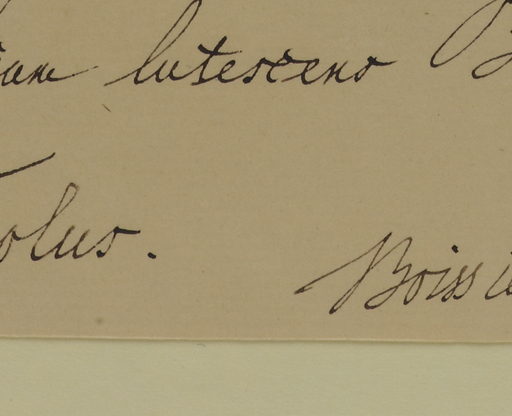 lutescens B
olus.
Boissie